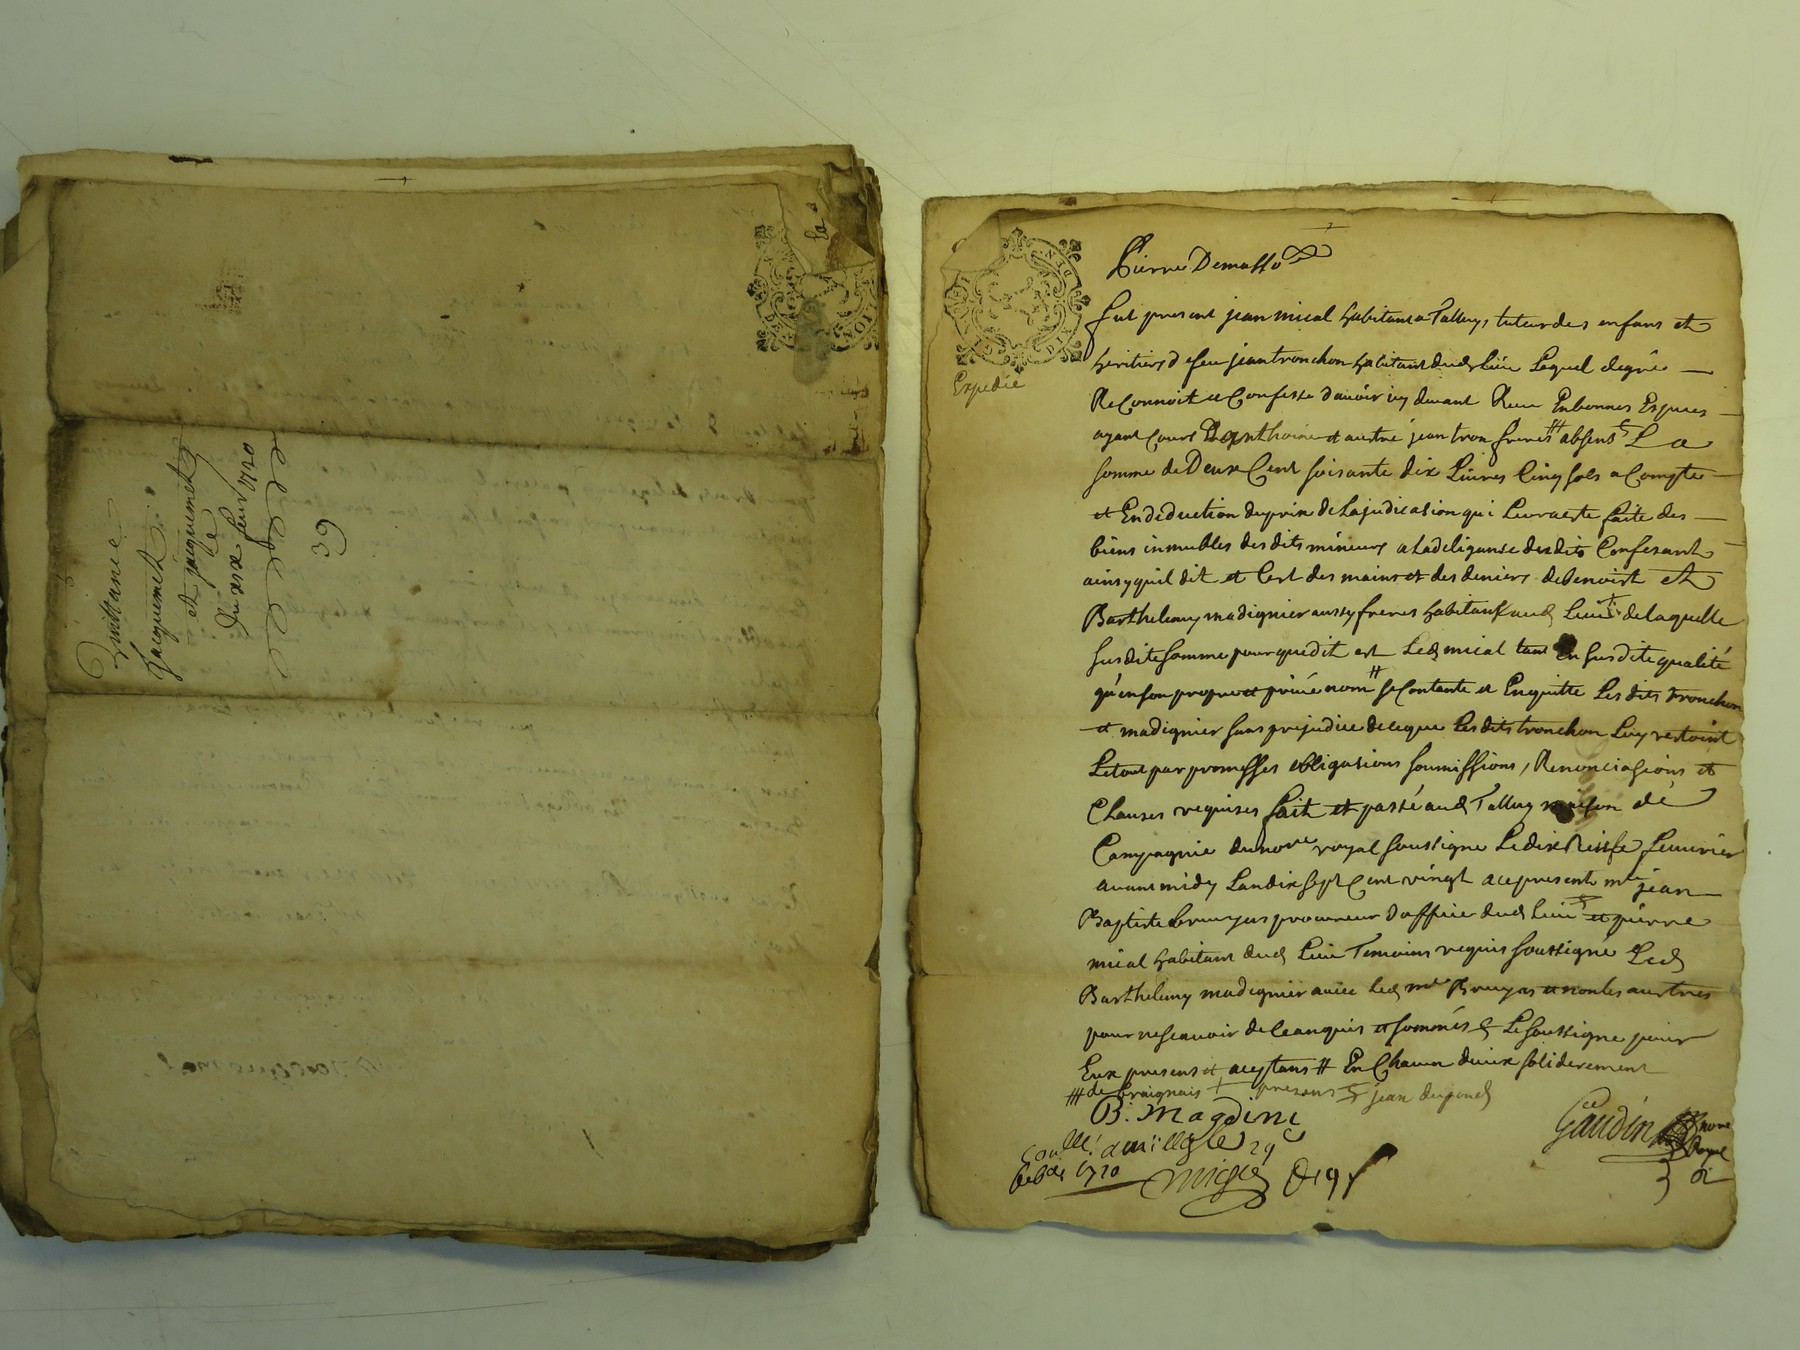 quittance
Jacquemet
et jacquemet
de
du xxx feur 1720
39
Pierre Demasso
fut present jean mical habitant a Talluys tuteur des enfans et
heritiers d efeu jean tronchon habitant dud Lieu Lequel degré
ReConnoit et Confesse davoir icy devant Receu En bonnes Especes
ayant Cours Danthoine et austre jean tron freres # absens La
somme de Deux Cent soisante dix Livres Cinq sols a Compte
et En deduction du prix de Lajudicasion qui Leur aesté faite des
biens inmubles des dits mineurs a La deliganse des dits Confesant
ainsy quil dit et C'est des mains et des deniers de benoist et
Barthelemy madignier aussy freres habitans aud Lieu + de laquelle
susdite somme pour que dit est Led mical tant En susdite qualité
qu'en son propre et privé nom # se Contante et En quitte Les dits tronchon
et madignier sans prejudice de ce que Les dits tronchon Luy restoint
Le tout par promesses obligasions soumissions, Renonciasions et
Clauses requises fait et passé aud Talluy maison de
Campagnie du nore royal soussigne Le dix neuf feuvrier
avant midy Lan dix sept Cent vingt ace present mtre jean
Baptiste bruyas procureur doffice dud Lieu et pierre
mical habitant dud Lieu Temoins requis soussigné Led
Barthelemy madignier avec Led mtre Bruyas et non les austres
pour ne scavoir de Ce anquis et sommés Le soussigne pour
Eux presens et aceptans # En Chacun d'eux soliderement
# de Craignais + presens jean dupond
B. Magdini
Gaudin nore
Royal
Conllé a mille 29
feb 1720
Expedié